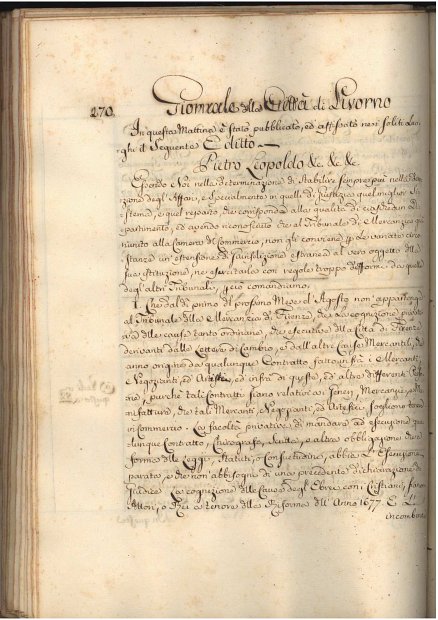 270.
Giornale della Città di Livorno
In questa Mattina è stato pubblicato, ed affissato nei soliti Luo-
ghi il Seguente Editto
Pietro Leopoldo &c. &c. &c.
Essendo Noi nella determinazione di Stabilire sempre più nella
zione degli Affari, e specialmente in quelli di Giustizia quel miglior Si-
stema, e quel reparto, che corrisponda alla qualità di ciaschedun
partimento, ed avendo riconosciuto che al Tribunale di Mercanzia
riunito alla Camera di Commercio, non gli conviene
stanza un'estensione di Giurisdizione estranea al vero oggetto della
sua istituzione, nè esercitarla con regole troppo difformi da quelle
degl'altri Tribunali, comandiamo.
1. Che dal dì primo del prossimo Mese d'Agosto non appartenga
al Tribunale della Mercanzia di Firenze, che la cognizione
va delle cause tanto ordinarie, che esecutive della Città di Firenze
derivanti dalle Lettere di Cambio, e dall'altri Cause Mercantili, che
anno origine da qualunque Contratto fatto infra i Mercanti,
Negozianti, ed Artisti, ed infra di questi, ed altre differenti Perso-
ne, purchè tali Contratti siano relativi ai Generi, Mercanzie, e Ma-
nifatture, che tali Mercanti, Negozianti, ed Artefici sogliono tene-
re in Commercio. La facoltà privativa di mandare ad esecuzione qua-
lunque Contratto, Chirografo, e altre obbligazioni che
forma delle Leggi, Statuti, o Consuetudini, abbiano l'Esecuzione
parata, e che non abbisogni di una precedente dichiarazione di
Giudice. La cognizione delle Cause degl'Ebrei con i Cristiani, siano
Attori, o Rei a tenore della Riforma dell'Anno 1677. E l'
incomben